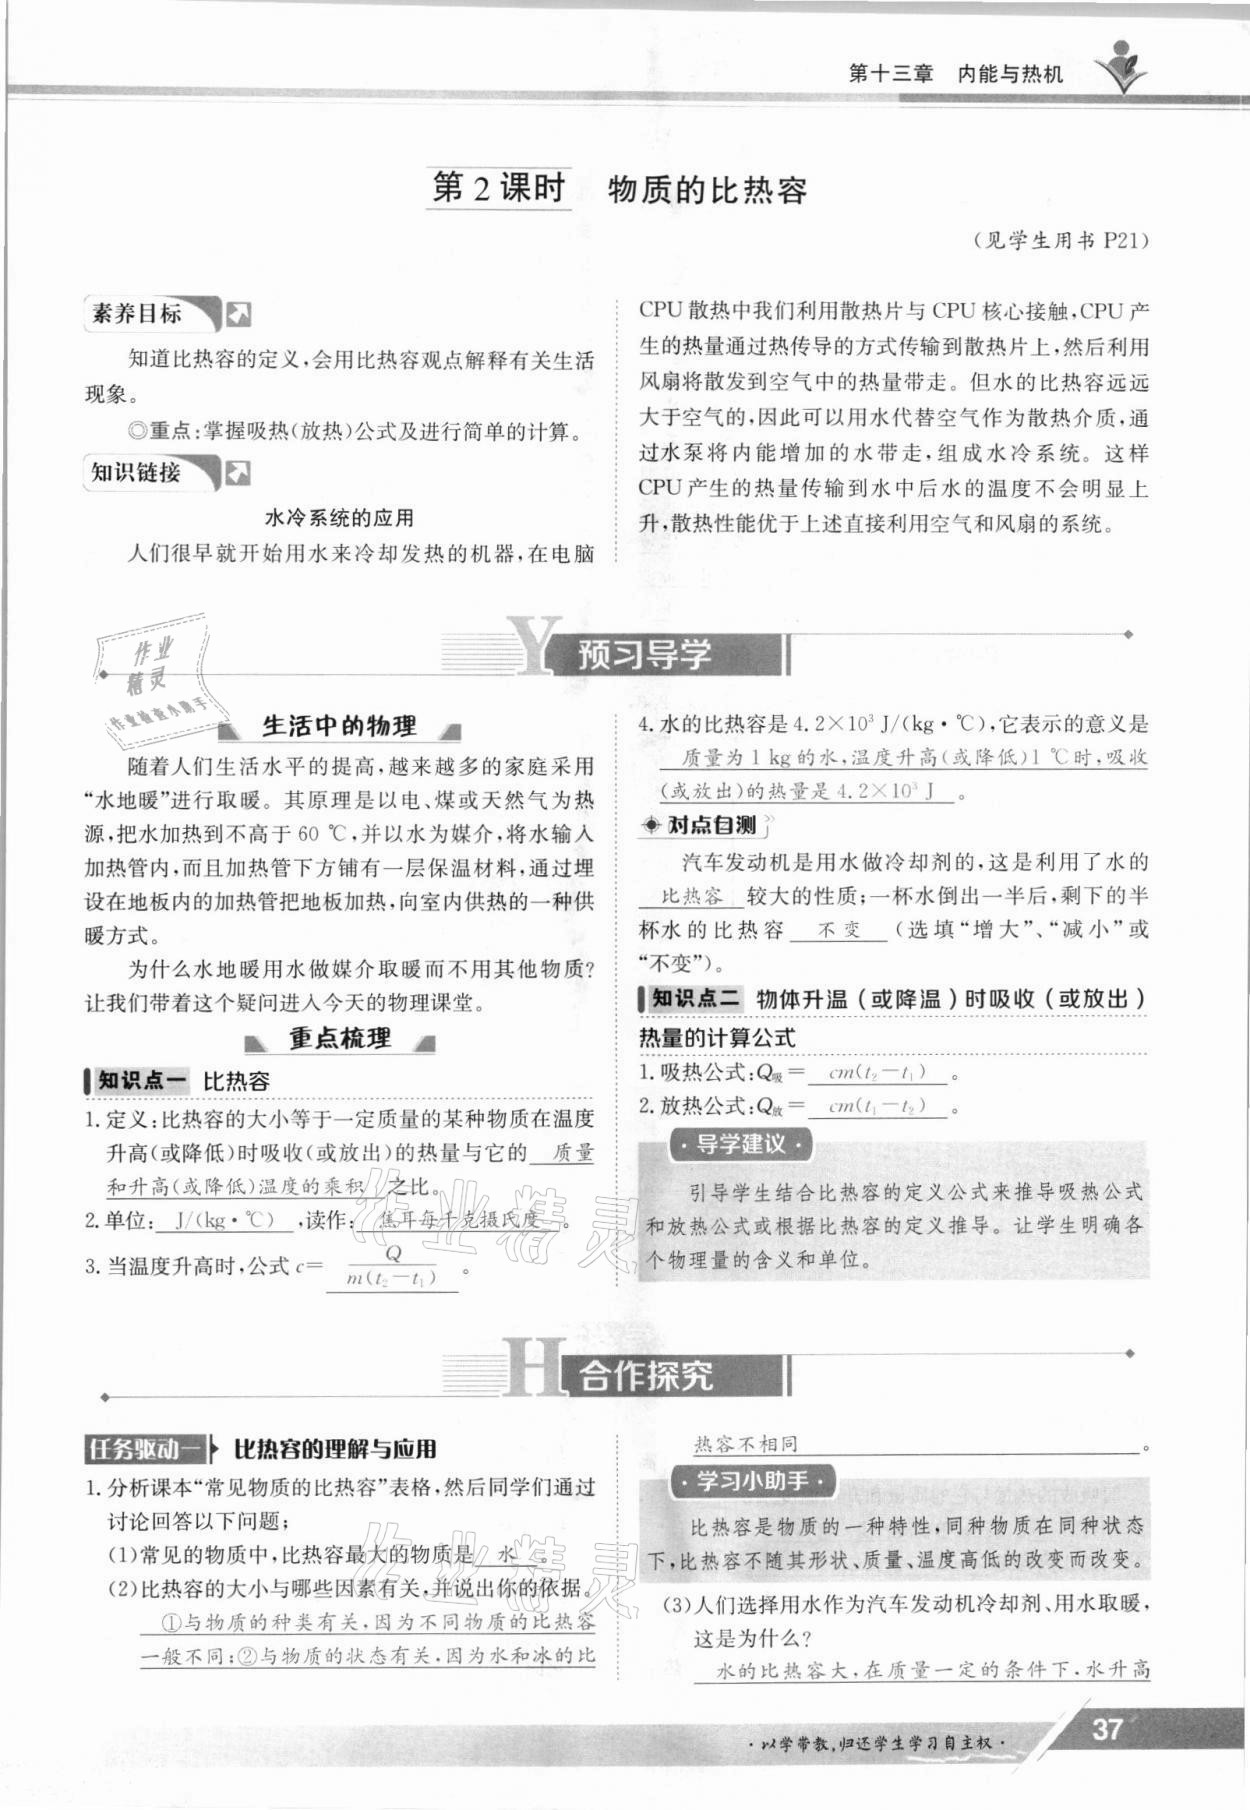 第十三章 内能与热机
第2课时 物质的比热容
(见学生用书 P21)
素养目标
知道比热容的定义,会用比热容观点解释有关生活
现象。
◎重点:掌握吸热(放热)公式及进行简单的计算。
知识链接
水冷系统的应用
人们很早就开始用水来冷却发热的机器,在电脑
CPU 散热中我们利用散热片与 CPU 核心接触,CPU 产
生的热量通过热传导的方式传输到散热片上,然后利用
风扇将散发到空气中的热量带走。但水的比热容远远
大于空气的,因此可以用水代替空气作为散热介质,通
过水泵将内能增加的水带走,组成水冷系统。这样
CPU 产生的热量传输到水中后水的温度不会明显上
升,散热性能优于上述直接利用空气和风扇的系统。
Y 预习导学
作业
精灵
作业检查小助手
生活中的物理
随着人们生活水平的提高,越来越多的家庭采用
“水地暖”进行取暖。其原理是以电、煤或天然气为热
源,把水加热到不高于 60 ℃,并以水为媒介,将水输入
加热管内,而且加热管下方铺有一层保温材料,通过埋
设在地板内的加热管把地板加热,向室内供热的一种供
暖方式。
为什么水地暖用水做媒介取暖而不用其他物质?
让我们带着这个疑问进入今天的物理课堂。
重点梳理
知识点一 比热容
1. 定义:比热容的大小等于一定质量的某种物质在温度
升高(或降低)时吸收(或放出)的热量与它的 质量
和升高(或降低)温度的乘积 之比。
2. 单位: J/(kg·℃) ,读作: 焦耳每千克摄氏度 。
3. 当温度升高时,公式 c= Q/m(t₂−t₁) 。
4. 水的比热容是 4.2×10³ J/(kg·℃),它表示的意义是
质量为 1 kg 的水,温度升高(或降低)1 ℃时,吸收
(或放出)的热量是 4.2×10³ J 。
对点自测
汽车发动机是用水做冷却剂的,这是利用了水的
比热容 较大的性质;一杯水倒出一半后,剩下的半
杯水的比热容 不变 (选填“增大”、“减小”或
“不变”)。
知识点二 物体升温(或降温)时吸收(或放出)
热量的计算公式
1. 吸热公式:Q吸= cm(t₂−t₁) 。
2. 放热公式:Q放= cm(t₁−t₂) 。
·导学建议·
引导学生结合比热容的定义公式来推导吸热公式
和放热公式或根据比热容的定义推导。让学生明确各
个物理量的含义和单位。
作业精灵
H 合作探究
任务驱动一 比热容的理解与应用
1. 分析课本“常见物质的比热容”表格,然后同学们通过
讨论回答以下问题;
(1)常见的物质中,比热容最大的物质是 水 。
(2)比热容的大小与哪些因素有关,并说出你的依据。
①与物质的种类有关,因为不同物质的比热容
一般不同;②与物质的状态有关,因为水和冰的比
热容不相同 。
·学习小助手·
比热容是物质的一种特性,同种物质在同种状态
下,比热容不随其形状、质量、温度高低的改变而改变。
(3)人们选择用水作为汽车发动机冷却剂、用水取暖,
这是为什么?
水的比热容大,在质量一定的条件下,水升高
作业精灵
·以学带教,归还学生学习自主权·
37